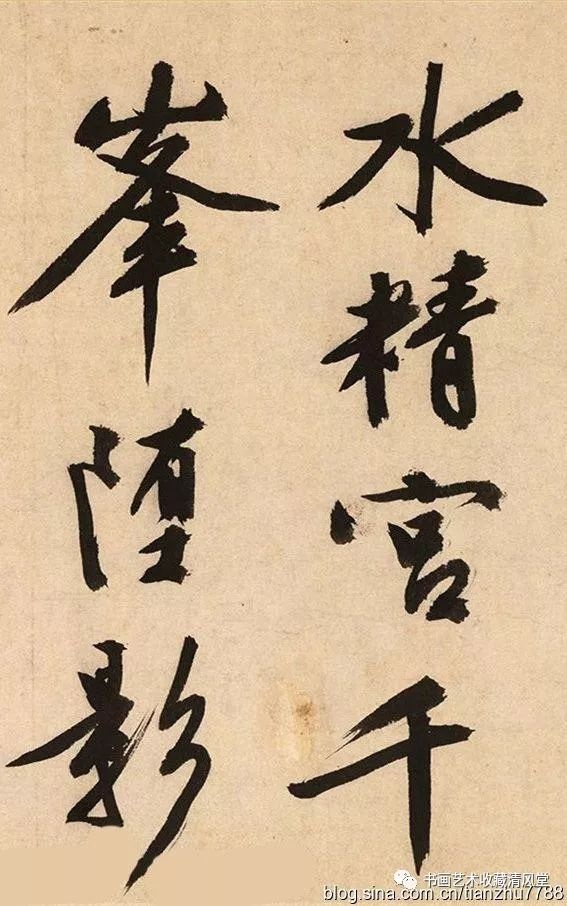 水精宫千
峯堕影
书画艺术收藏清风堂
blog.sina.com.cn/tianzhu7788